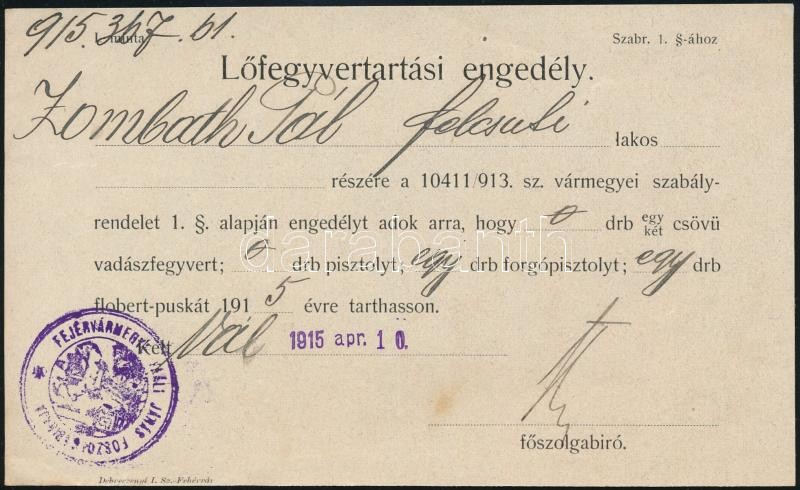 915. 347. 61.
I. minta Szabr. 1. §-ához
Lőfegyvertartási engedély.
Zombath Pál felcsuti lakos
részére a 10411/913. sz. vármegyei szabály-
rendelet 1. §. alapján engedélyt adok arra, hogy 0 drb egy két csövü
vadászfegyvert; 0 drb pisztolyt; egy drb forgópisztolyt; egy drb
flobert-puskát 1915 évre tarthasson.
Kelt Vál 1915 apr. 10.
FEJÉRVÁRMEGYE VÁLI JÁRÁS FŐSZOLGABIRÁJA
főszolgabiró.
Debreczenyi I. Sz.-Fehérvár
darabanth